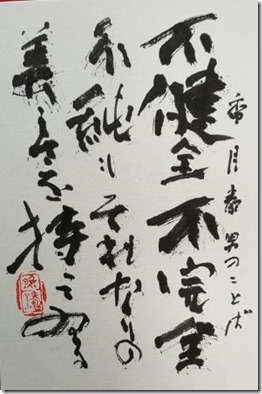 香月泰男のことば
不健全不完全
不純もそれなりの
美しさを持てゐる